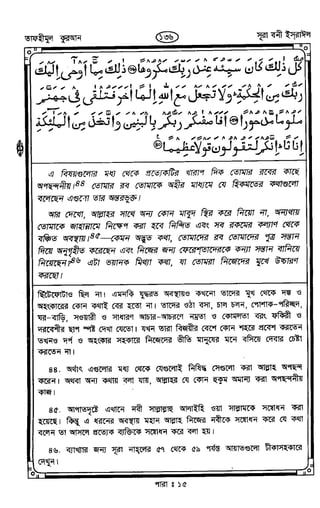 তাফহীমুল কুরআন
১৩৬
সূরা বনী ইসরাঈল
كُلُّ ذٰلِكَ كَانَ سَيِّئُهٗ عِنْدَ رَبِّكَ مَكْرُوْهًا ﴿﴾ ذٰلِكَ مِمَّآ اَوْحٰٓى اِلَيْكَ
رَبُّكَ مِنَ الْحِكْمَةِ ؕ وَلَا تَجْعَلْ مَعَ اللّٰهِ اِلٰهًا اٰخَرَ فَتُلْقٰى فِيْ جَهَنَّمَ
مَلُوْمًا مَّدْحُوْرًا ﴿﴾ اَفَاَصْفٰىكُمْ رَبُّكُمْ بِالْبَنِيْنَ وَاتَّخَذَ مِنَ الْمَلٰٓئِكَةِ
اِنَاثًا ؕ اِنَّكُمْ لَتَقُوْلُوْنَ قَوْلًا عَظِيْمًا ﴿﴾
এ বিষয়গুলোর মধ্য থেকে প্রত্যেকটির খারাপ দিক তোমার রবের কাছে
অপছন্দনীয়।৪৪ তোমার রব তোমাকে অহীর মাধ্যমে যে হিকমতের কথাগুলো
বলেছেন এগুলো তার অন্তরভুক্ত।
আর দেখো, আল্লাহর সাথে অন্য কোন মাবুদ স্থির করে নিয়ো না, অন্যথায়
তোমাকে জাহান্নামে নিক্ষেপ করা হবে নিন্দিত এবং সব রকমের কল্যাণ থেকে
বঞ্চিত অবস্থায়।৪৫—কেমন অদ্ভুত কথা, তোমাদের রব তোমাদের পুত্র সন্তান
দিয়ে অনুগৃহীত করেছেন এবং নিজের জন্য ফেরেশতাদেরকে কন্যা সন্তান বানিয়ে
নিয়েছেন।৪৬ এটা ভয়ানক মিথ্যা কথা, যা তোমরা নিজেদের মুখে উচ্চারণ
করছো।
ছিঁটেফোটাও ছিল না। এমনকি যুদ্ধরত অবস্থায়ও কখনো তাদের মুখ থেকে দম্ভ ও
অহংকারের কোন কথাই বের হতো না। তাদের ওঠা বসা, চাল চলন, পোশাক-পরিচ্ছদ,
ঘর-বাড়ি, সওয়ারী ও সাধারণ আচার-আচরণে নম্রতা ও কোমলতা বরং ফকিরী ও
দরবেশীর ছাপ স্পষ্ট দেখা যেতো। যখন তারা বিজয়ীর বেশে কোন শহরে প্রবেশ করতেন
তখনও দর্প ও অহংকার সহকারে নিজেদের ভীতি মানুষের মনে বসিয়ে দেবার চেষ্টা
করতেন না।
৪৪. অর্থাৎ এগুলোর মধ্য থেকে যেগুলোই নিষিদ্ধ সেগুলো করা আল্লাহ অপছন্দ
করেন। অথবা অন্য কথায় বলা যায়, আল্লাহর যে কোন হুকুম অমান্য করা অপছন্দনীয়
কাজ।
৪৫. আপাতদৃষ্টে এখানে নবী সাল্লাল্লাহু আলাইহি ওয়া সাল্লামকে সম্বোধন করা
হয়েছে। কিন্তু এ ধরনের অবস্থায় মহান আল্লাহ নিজের নবীকে সম্বোধন করে যে কথা
বলেন তা আসলে প্রত্যেক ব্যক্তিকে সম্বোধন করে বলা হয়।
৪৬. ব্যাখ্যার জন্য সূরা নাহলের ৫৭ থেকে ৫৯ পর্যন্ত আয়াতগুলো টীকাসহকারে
দেখুন।
পারা : ১৫